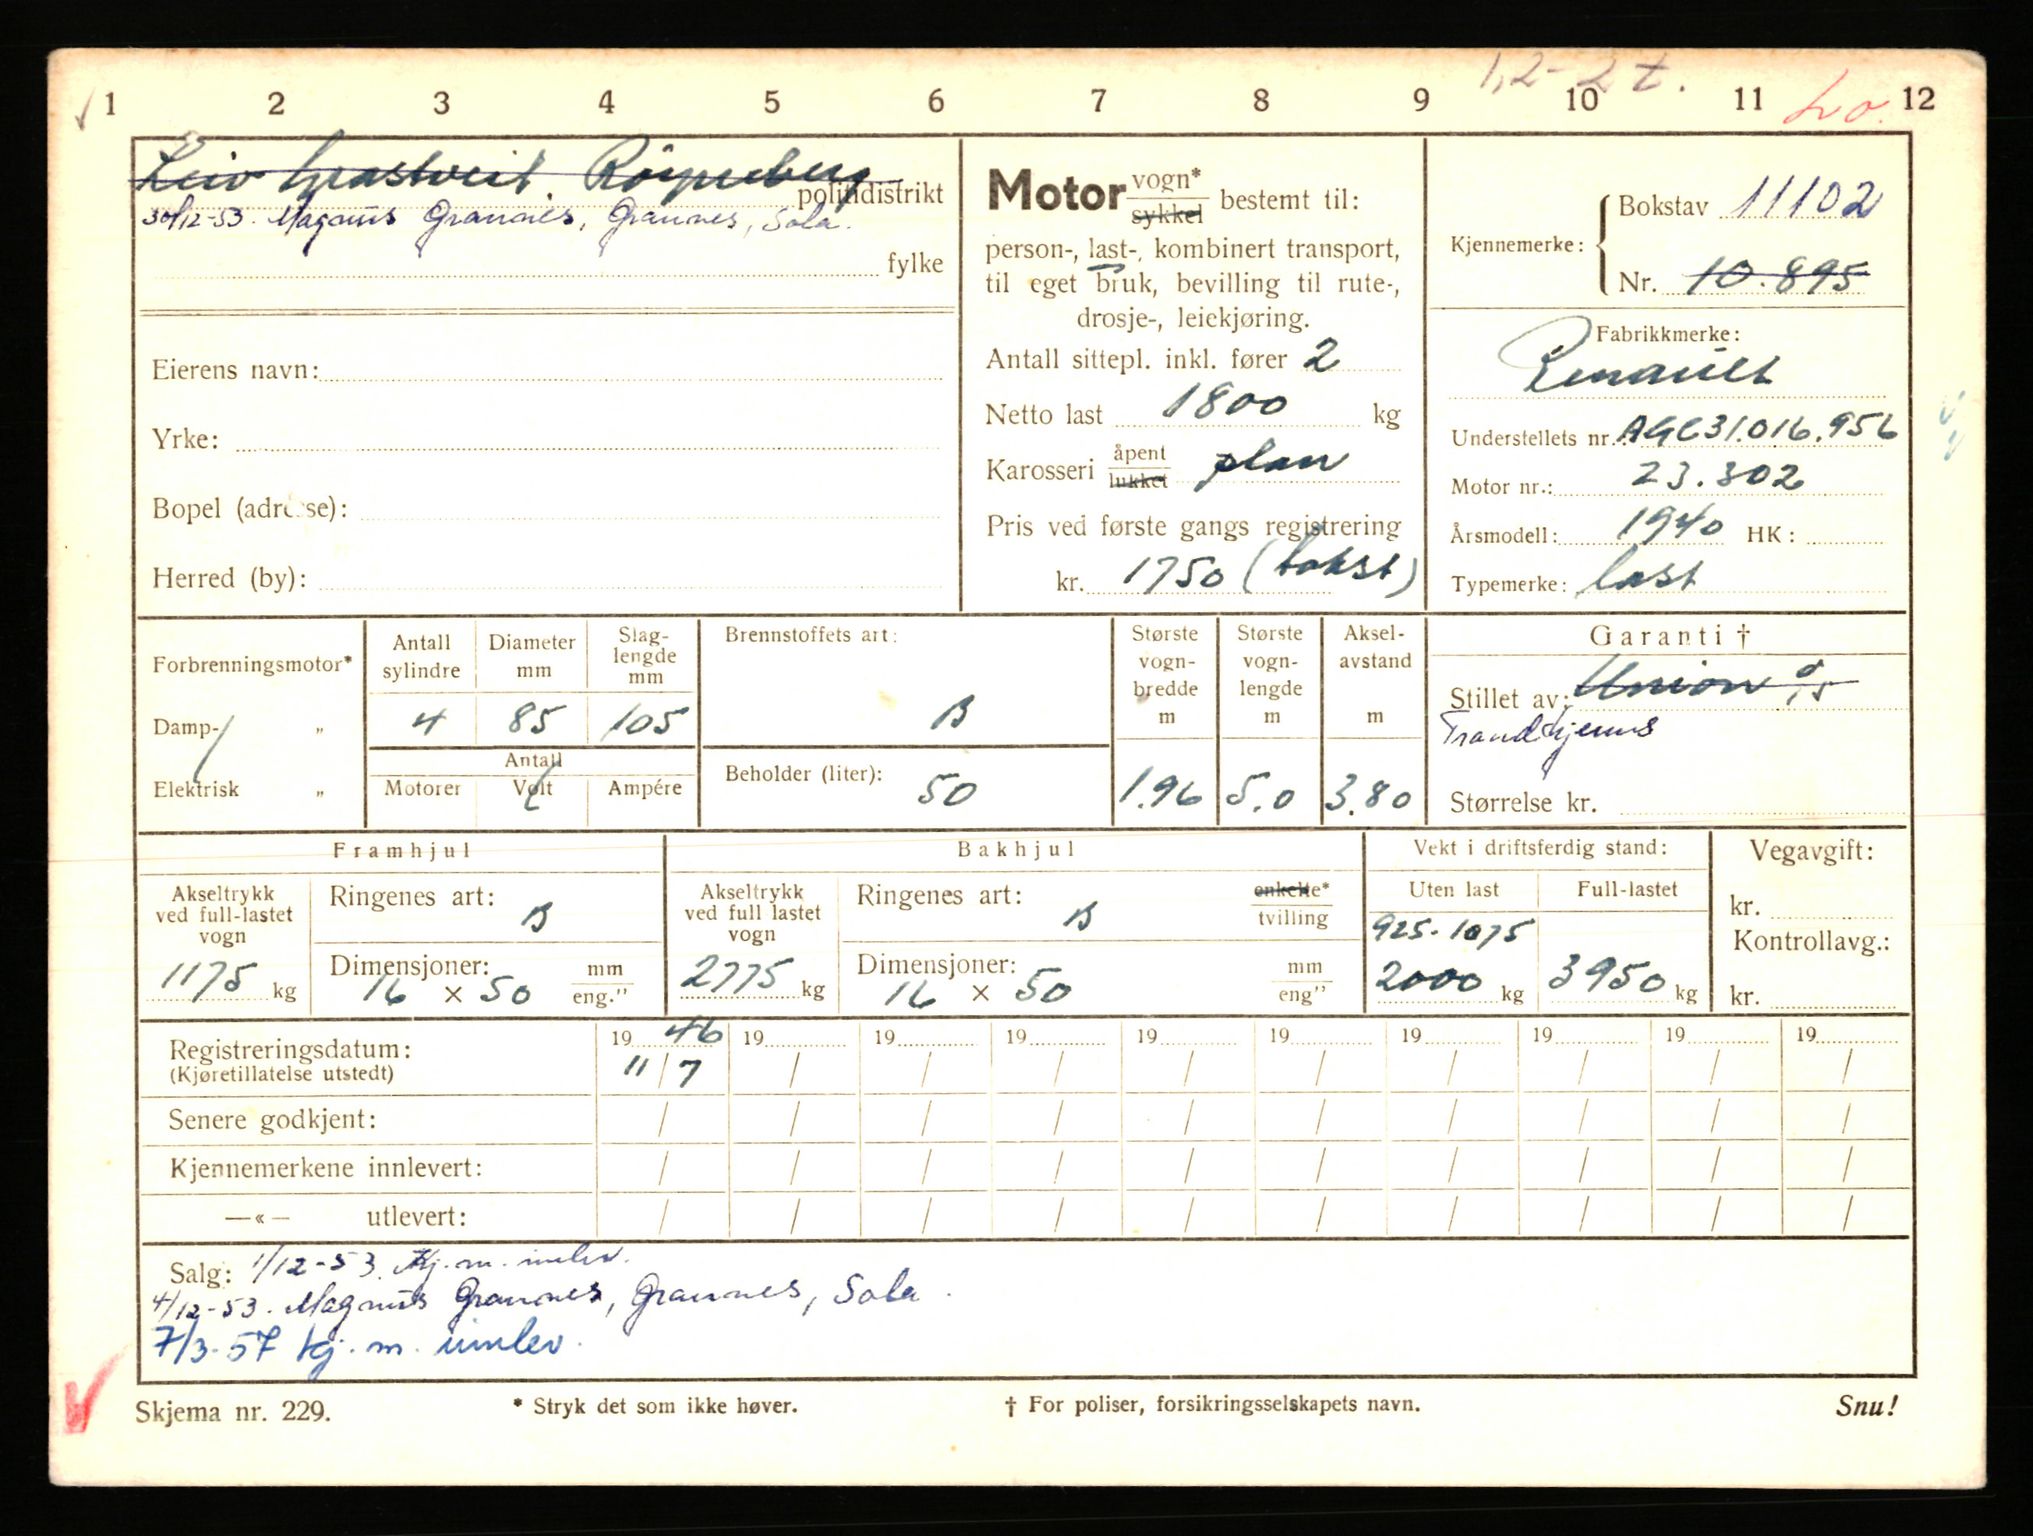 1,2-2 t.
1 2 3 4 5 6 7 8 9 10 11 12
Leiv Grastveit.
politidistrikt
30/12-53. Magnus Grannes, Grannes, Sola.
fylke
Eierens navn:
Yrke:
Bopel (adresse):
Herred (by):
Motor vogn* sykkel bestemt til:
person-, last-, kombinert transport,
til eget bruk, bevilling til rute-,
drosje-, leiekjøring.
Antall sittepl. inkl. fører 2
Netto last 1800 kg
Karosseri åpent lukket plan
Pris ved første gangs registrering
kr. 1750 (takst)
Kjennemerke:
Bokstav 11102
Nr. 10.895
Fabrikkmerke:
Renault
Understellets nr.: AGC31.016.956
Motor nr.: 23.302
Årsmodell: 1940 HK:
Typemerke: last
Forbrenningsmotor*
Damp- „
Elektrisk „
Antall sylindre
Diameter mm
Slag-lengde mm
4 85 105
Antall
Motorer Volt Ampére
Brennstoffets art:
B
Beholder (liter): 50
Største vogn-bredde m
1.96
Største vogn-lengde m
5.0
Aksel-avstand m
3.80
Garanti †
Stillet av: Union
Trondhjems
Størrelse kr.
Framhjul
Akseltrykk ved full-lastet vogn
1175 kg
Ringenes art: B
Dimensjoner: mm
16 × 50 eng."
Bakhjul
Akseltrykk ved full lastet vogn
2775 kg
Ringenes art: B
enkelte*
tvilling
Dimensjoner: mm
16 × 50 eng"
Vekt i driftsferdig stand:
Uten last Full-lastet
925-1075
2000 kg 3950 kg
Vegavgift:
kr.
Kontrollavg.:
kr.
19 46 19 19 19 19 19 19 19 19 19
Registreringsdatum: 11/7 / / / / / / / / /
(Kjøretillatelse utstedt)
Senere godkjent: / / / / / / / / / /
Kjennemerkene innlevert: / / / / / / / / / /
—«— utlevert: / / / / / / / / / /
Salg: 1/12-53. Kj. m. innlev.
4/12-53. Magnus Grannes, Grannes, Sola.
7/3-57 kj. m. innlev.
Skjema nr. 229.
* Stryk det som ikke høver.
† For poliser, forsikringsselskapets navn.
Snu!